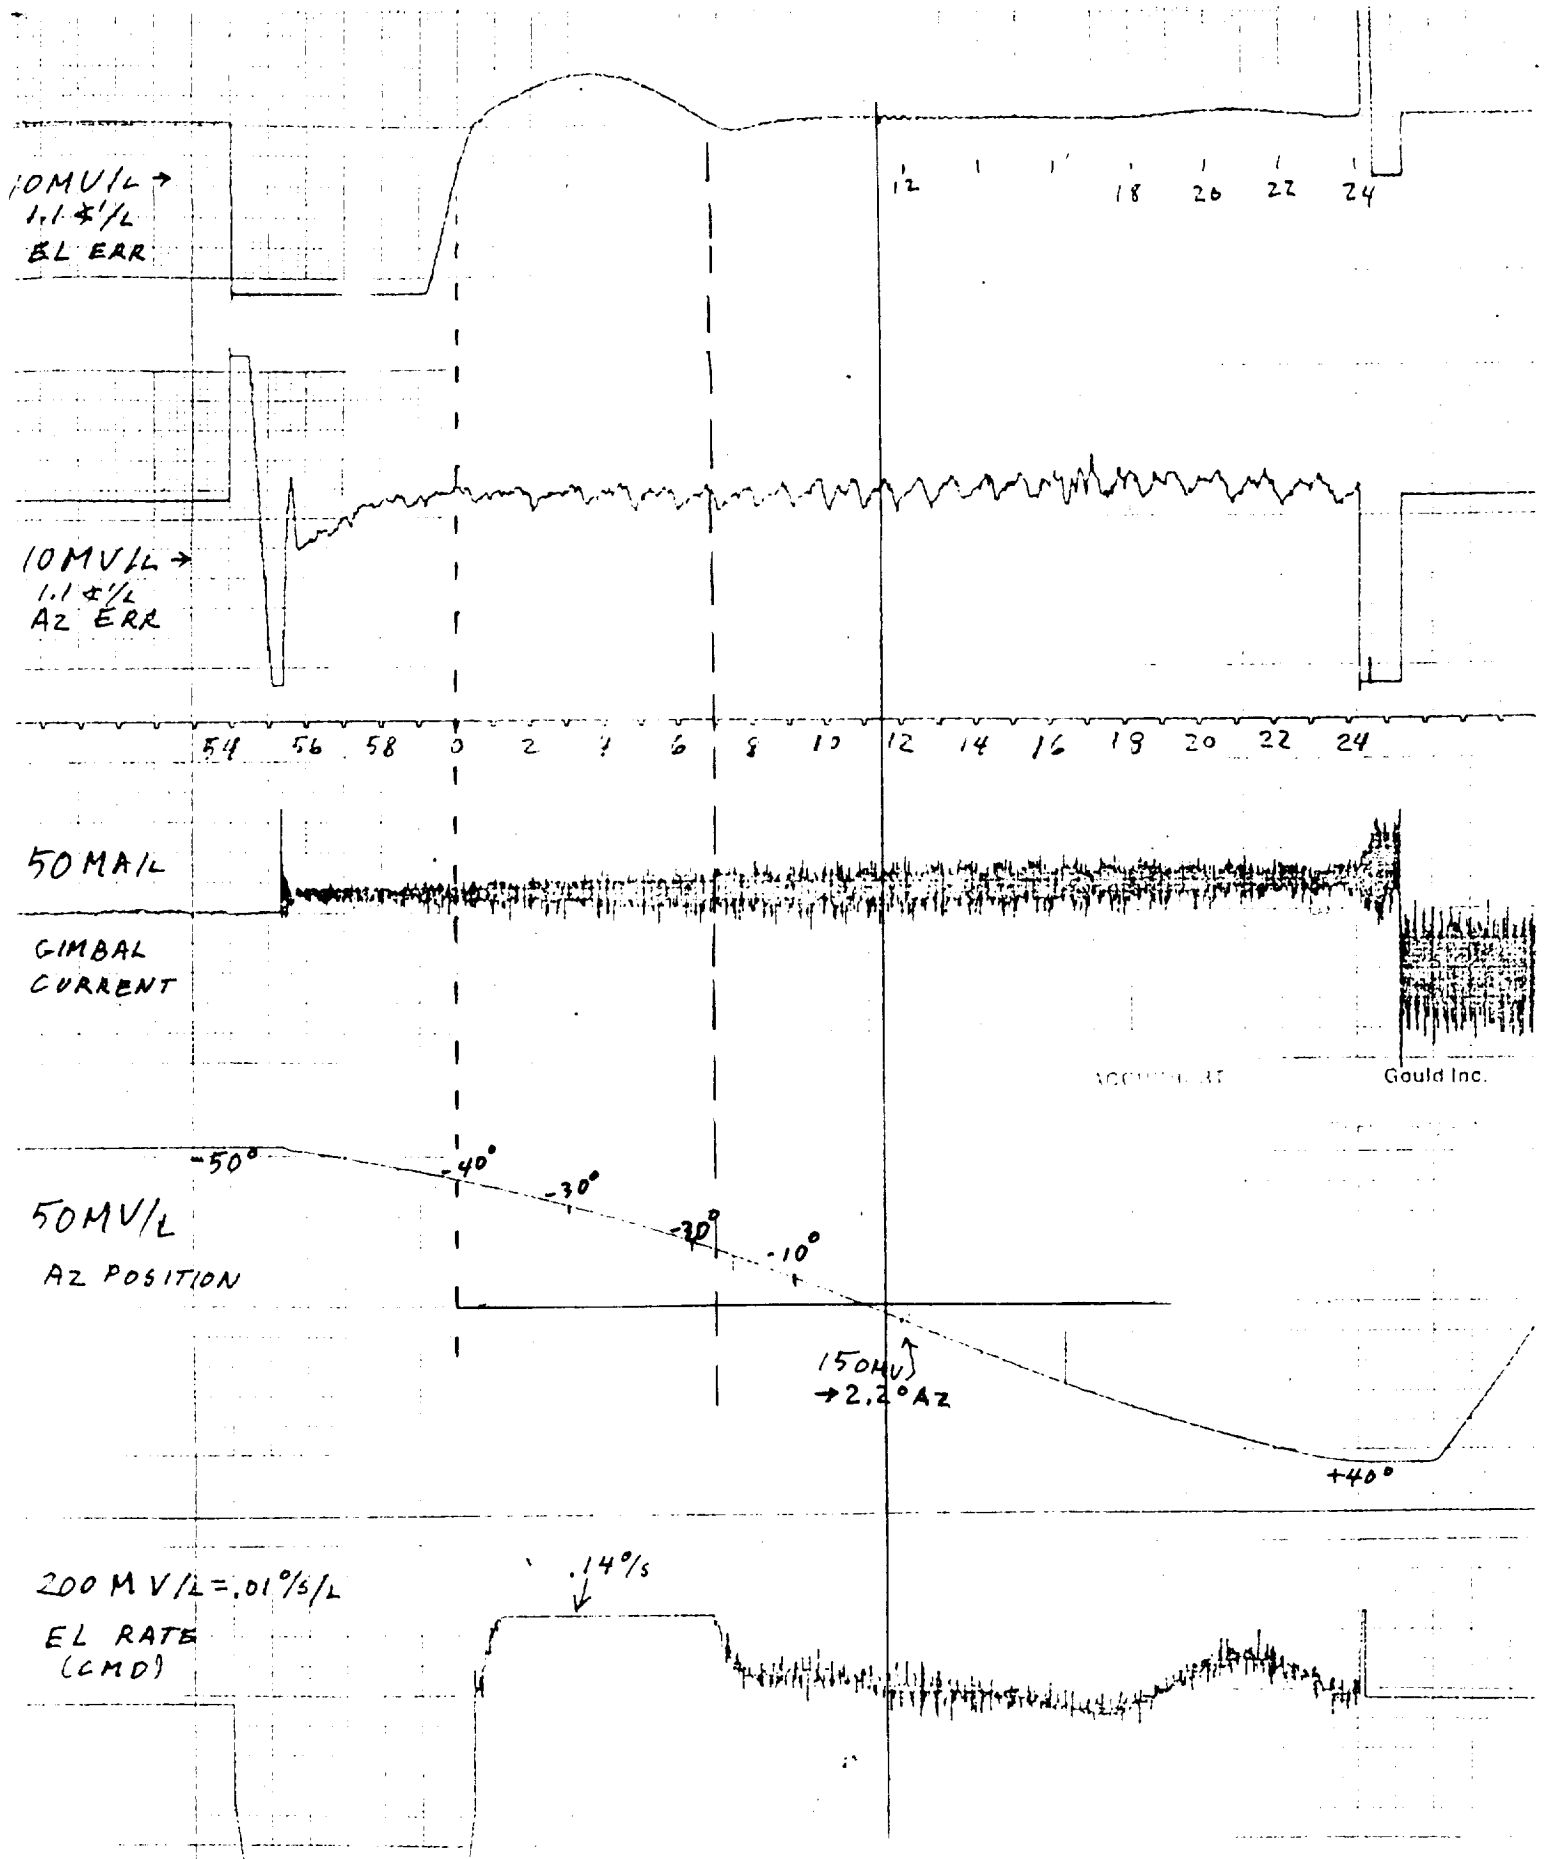 10MV/L →
1.1∡'/L
EL ERR
12 18 20 22 24
10MV/L →
1.1∡'/L
AZ ERR
54 56 58 0 2 4 6 8 10 12 14 16 18 20 22 24
50MA/L
GIMBAL
CURRENT
Gould Inc.
-50°
-40°
-30°
-20°
-10°
50MV/L
AZ POSITION
150MV
→2.2°AZ
+40°
200MV/L=.01°/S/L
.14°/s
EL RATE
(CMD)